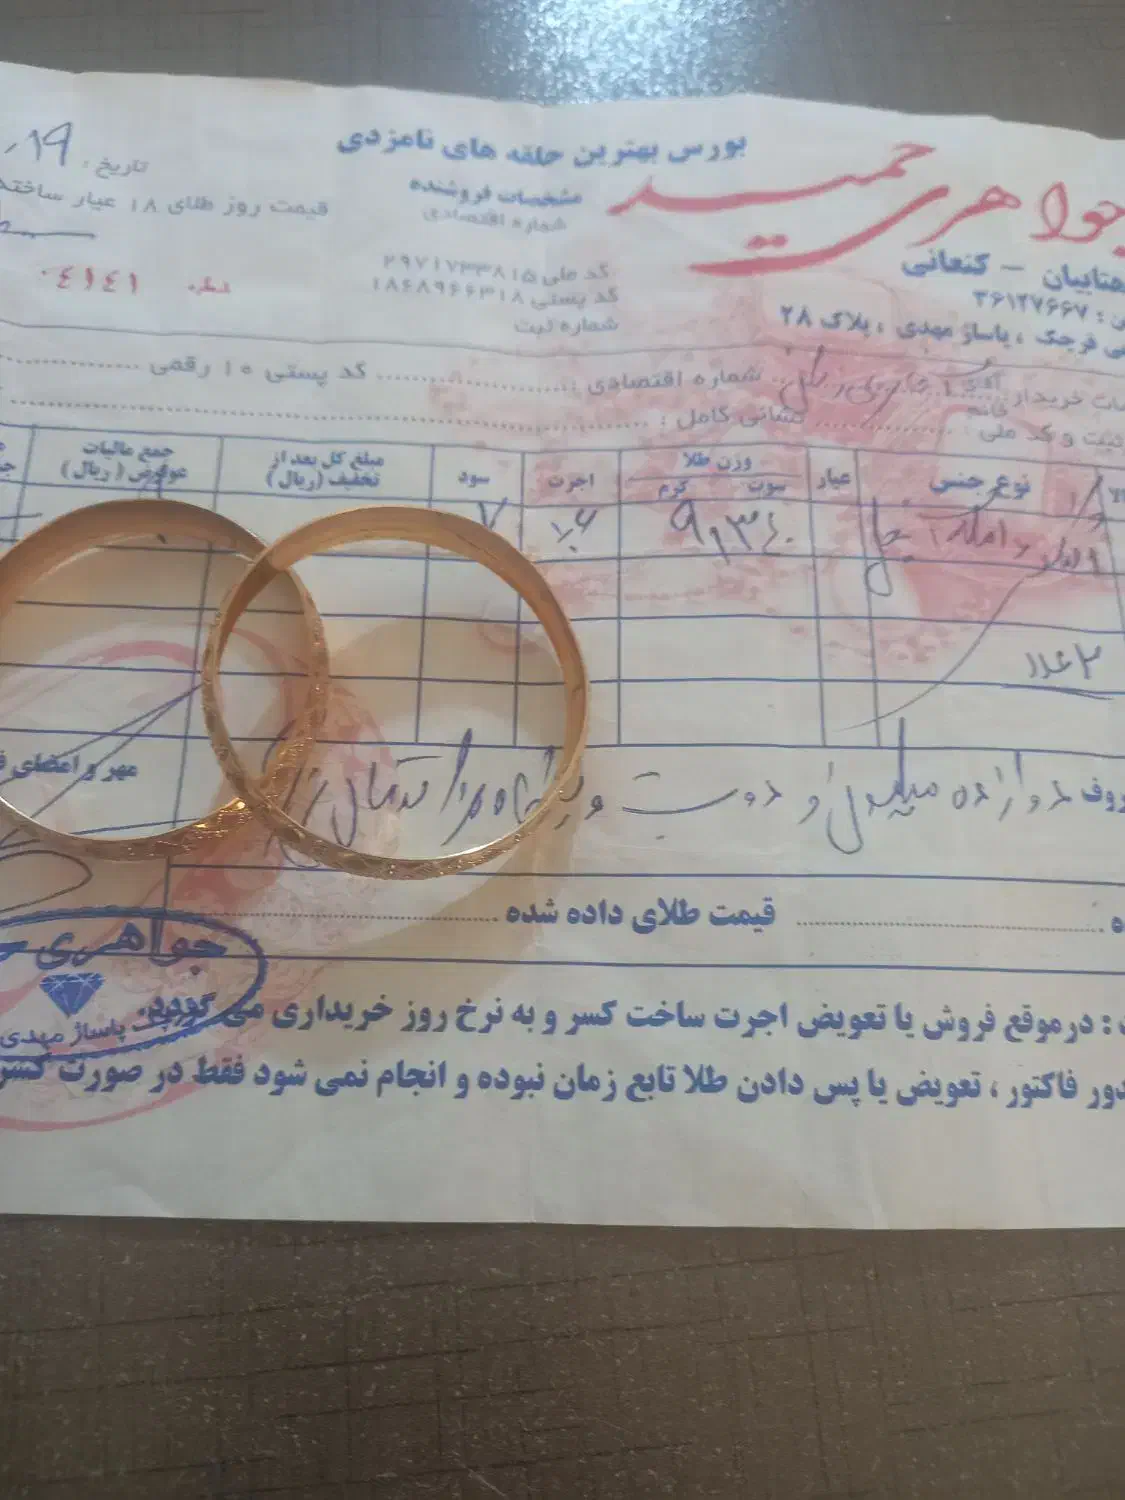 جواهری حمید
بورس بهترین حلقه های نامزدی
مشخصات فروشنده
شماره اقتصادی
کد ملی ۲۹۷۱۷۳۳۸۱۵
کد پستی ۱۸۶۸۹۶۶۳۱۸
شماره ثبت
تاریخ : ۱۹
قیمت روز طلای ۱۸ عیار ساخته
۰۴۱۴۱
مهتابیان - کنعانی
۳۶۱۲۷۶۶۷
فرجک ، پاساژ مهدی ، پلاک ۲۸
خریدار آقای خانم شماره اقتصادی : کد پستی ۱۰ رقمی
ثبت و کد ملی : نشانی کامل :
نوع جنس عیار وزن طلا سوت گرم اجرت سود مبلغ کل بعد از تخفیف (ریال) جمع مالیات عوارض (ریال)
النگو ۹,۳۴۰ ۷
۲ عدد
دوازده میلیون و دویست و پنجاه هزار تومان
مهر و امضای
قیمت طلای داده شده
: درموقع فروش یا تعویض اجرت ساخت کسر و به نرخ روز خریداری می گردد.
فاکتور ، تعویض یا پس دادن طلا تابع زمان نبوده و انجام نمی شود فقط در صورت کسر
جواهری
پاساژ مهدی